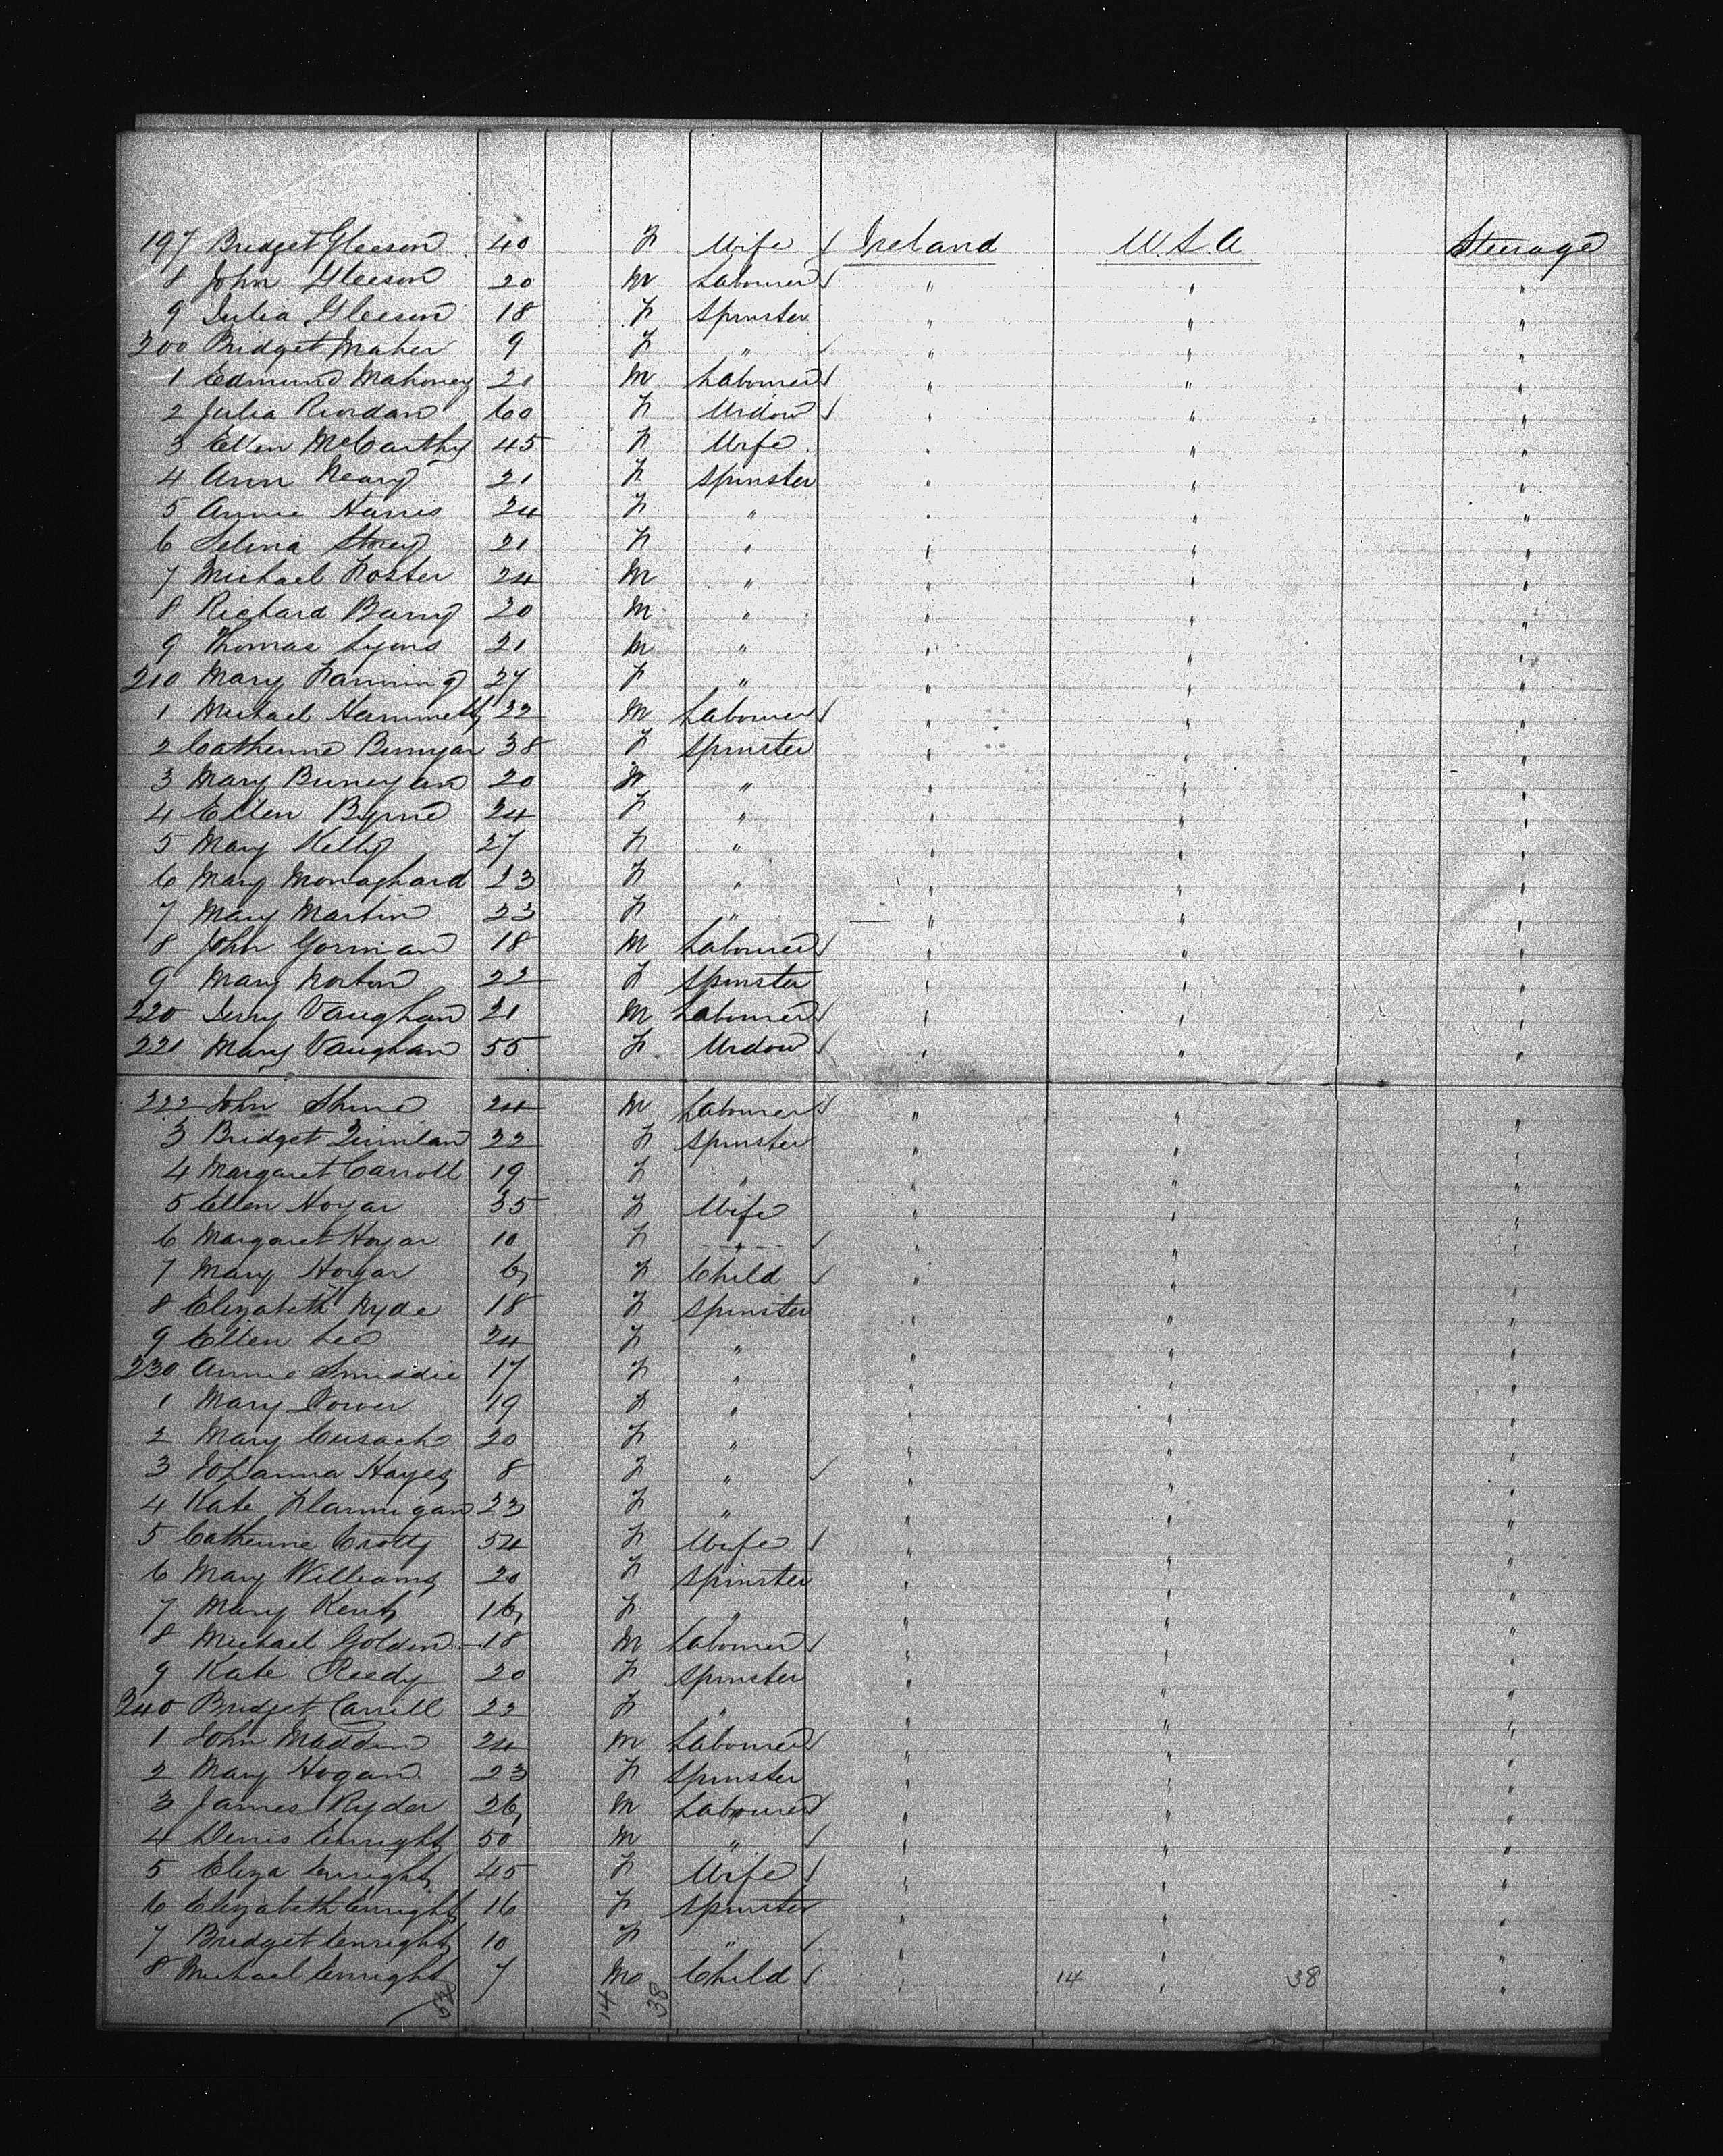 197 Bridget Gleeson 40 F Wife Ireland U.S.A. Steerage
8 John Gleeson 20 M Labourer " " "
9 Julia Gleeson 18 F Spinster " " "
200 Bridget Maher 9 F " " " "
1 Edmund Mahoney 20 M Labourer " " "
2 Julia Riordan 60 F Widow " " "
3 Ellen McCarthy 45 F Wife " " "
4 Ann Neary 21 F Spinster " " "
5 Annie Harris 24 F " " " "
6 Selina 21 F " " " "
7 Michael Foster 24 M " " " "
8 Richard Barry 20 M " " " "
9 Thomas Lyons 21 M " " " "
210 Mary Fanning 27 F " " " "
1 Michael Hammett 22 M Labourer " " "
2 Catherine Bunyan 38 F Spinster " " "
3 Mary Bunyan 20 F " " " "
4 Ellen Byrne 24 F " " " "
5 Mary Kelly 27 F " " " "
6 Mary Monaghard 23 F " " " "
7 Mary Martin 23 F " " " "
8 John Gorman 18 M Labourer " " "
9 Mary Norton 22 F Spinster " " "
220 Jerry Vaughan 21 M Labourer " " "
221 Mary Vaughan 55 F Widow " " "
222 John Shine 24 M Labourer " " "
3 Bridget Quinlan 22 F Spinster " " "
4 Margaret Carroll 19 F " " " "
5 Ellen Hogar 35 F Wife " " "
6 Margaret Hogar 10 F " " "
7 Mary Hogar 6 F Child " " "
8 Elizabeth Ryde 18 F Spinster " " "
9 Ellen Lee 24 F " " " "
230 Annie Smiddie 17 F " " " "
1 Mary Power 19 F " " " "
2 Mary Cusack 20 F " " " "
3 Johanna Hayes 8 F " " " "
4 Kate Flannigan 23 F " " " "
5 Catherine Crotty 54 F Wife " " "
6 Mary Williams 20 F Spinster " " "
7 Mary Kent 16 F " " " "
8 Michael Golden 18 M Labourer " " "
9 Kate Reedy 20 F Spinster " " "
240 Bridget Carroll 22 F " " " "
1 John Maddin 24 M Labourer " " "
2 Mary Hogan 23 F Spinster " " "
3 James Ryder 26 M Labourer " " "
4 Denis Enright 50 M " " " "
5 Eliza Enright 45 F Wife " " "
6 Elizabeth Enright 16 F Spinster " " "
7 Bridget Enright 10 F " " " "
8 Michael Enright 7 M Child " 14 " 38 "
14 38